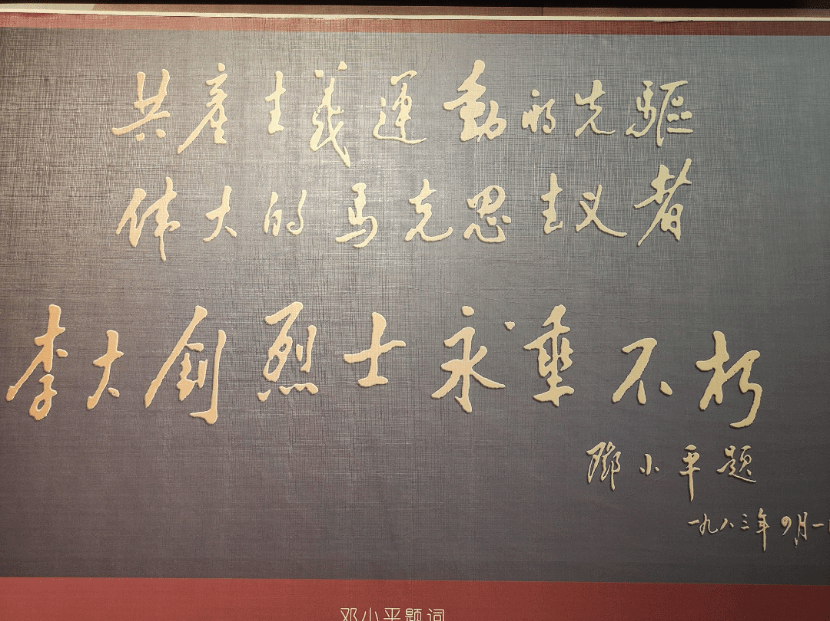 共產主義運動的先驅
伟大的马克思主义者
李大釗烈士永垂不朽
鄧小平題
一九八三年 月一
邓小平题词